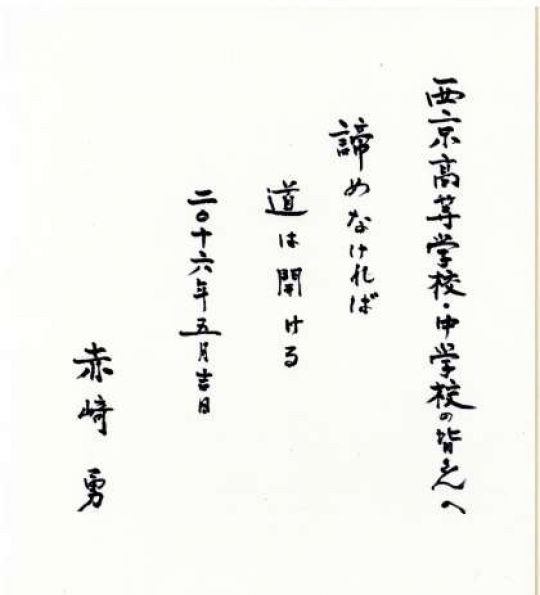 西京高等学校・中学校の皆さんへ
諦めなければ
道は開ける
二〇十六年五月吉日
赤﨑 勇